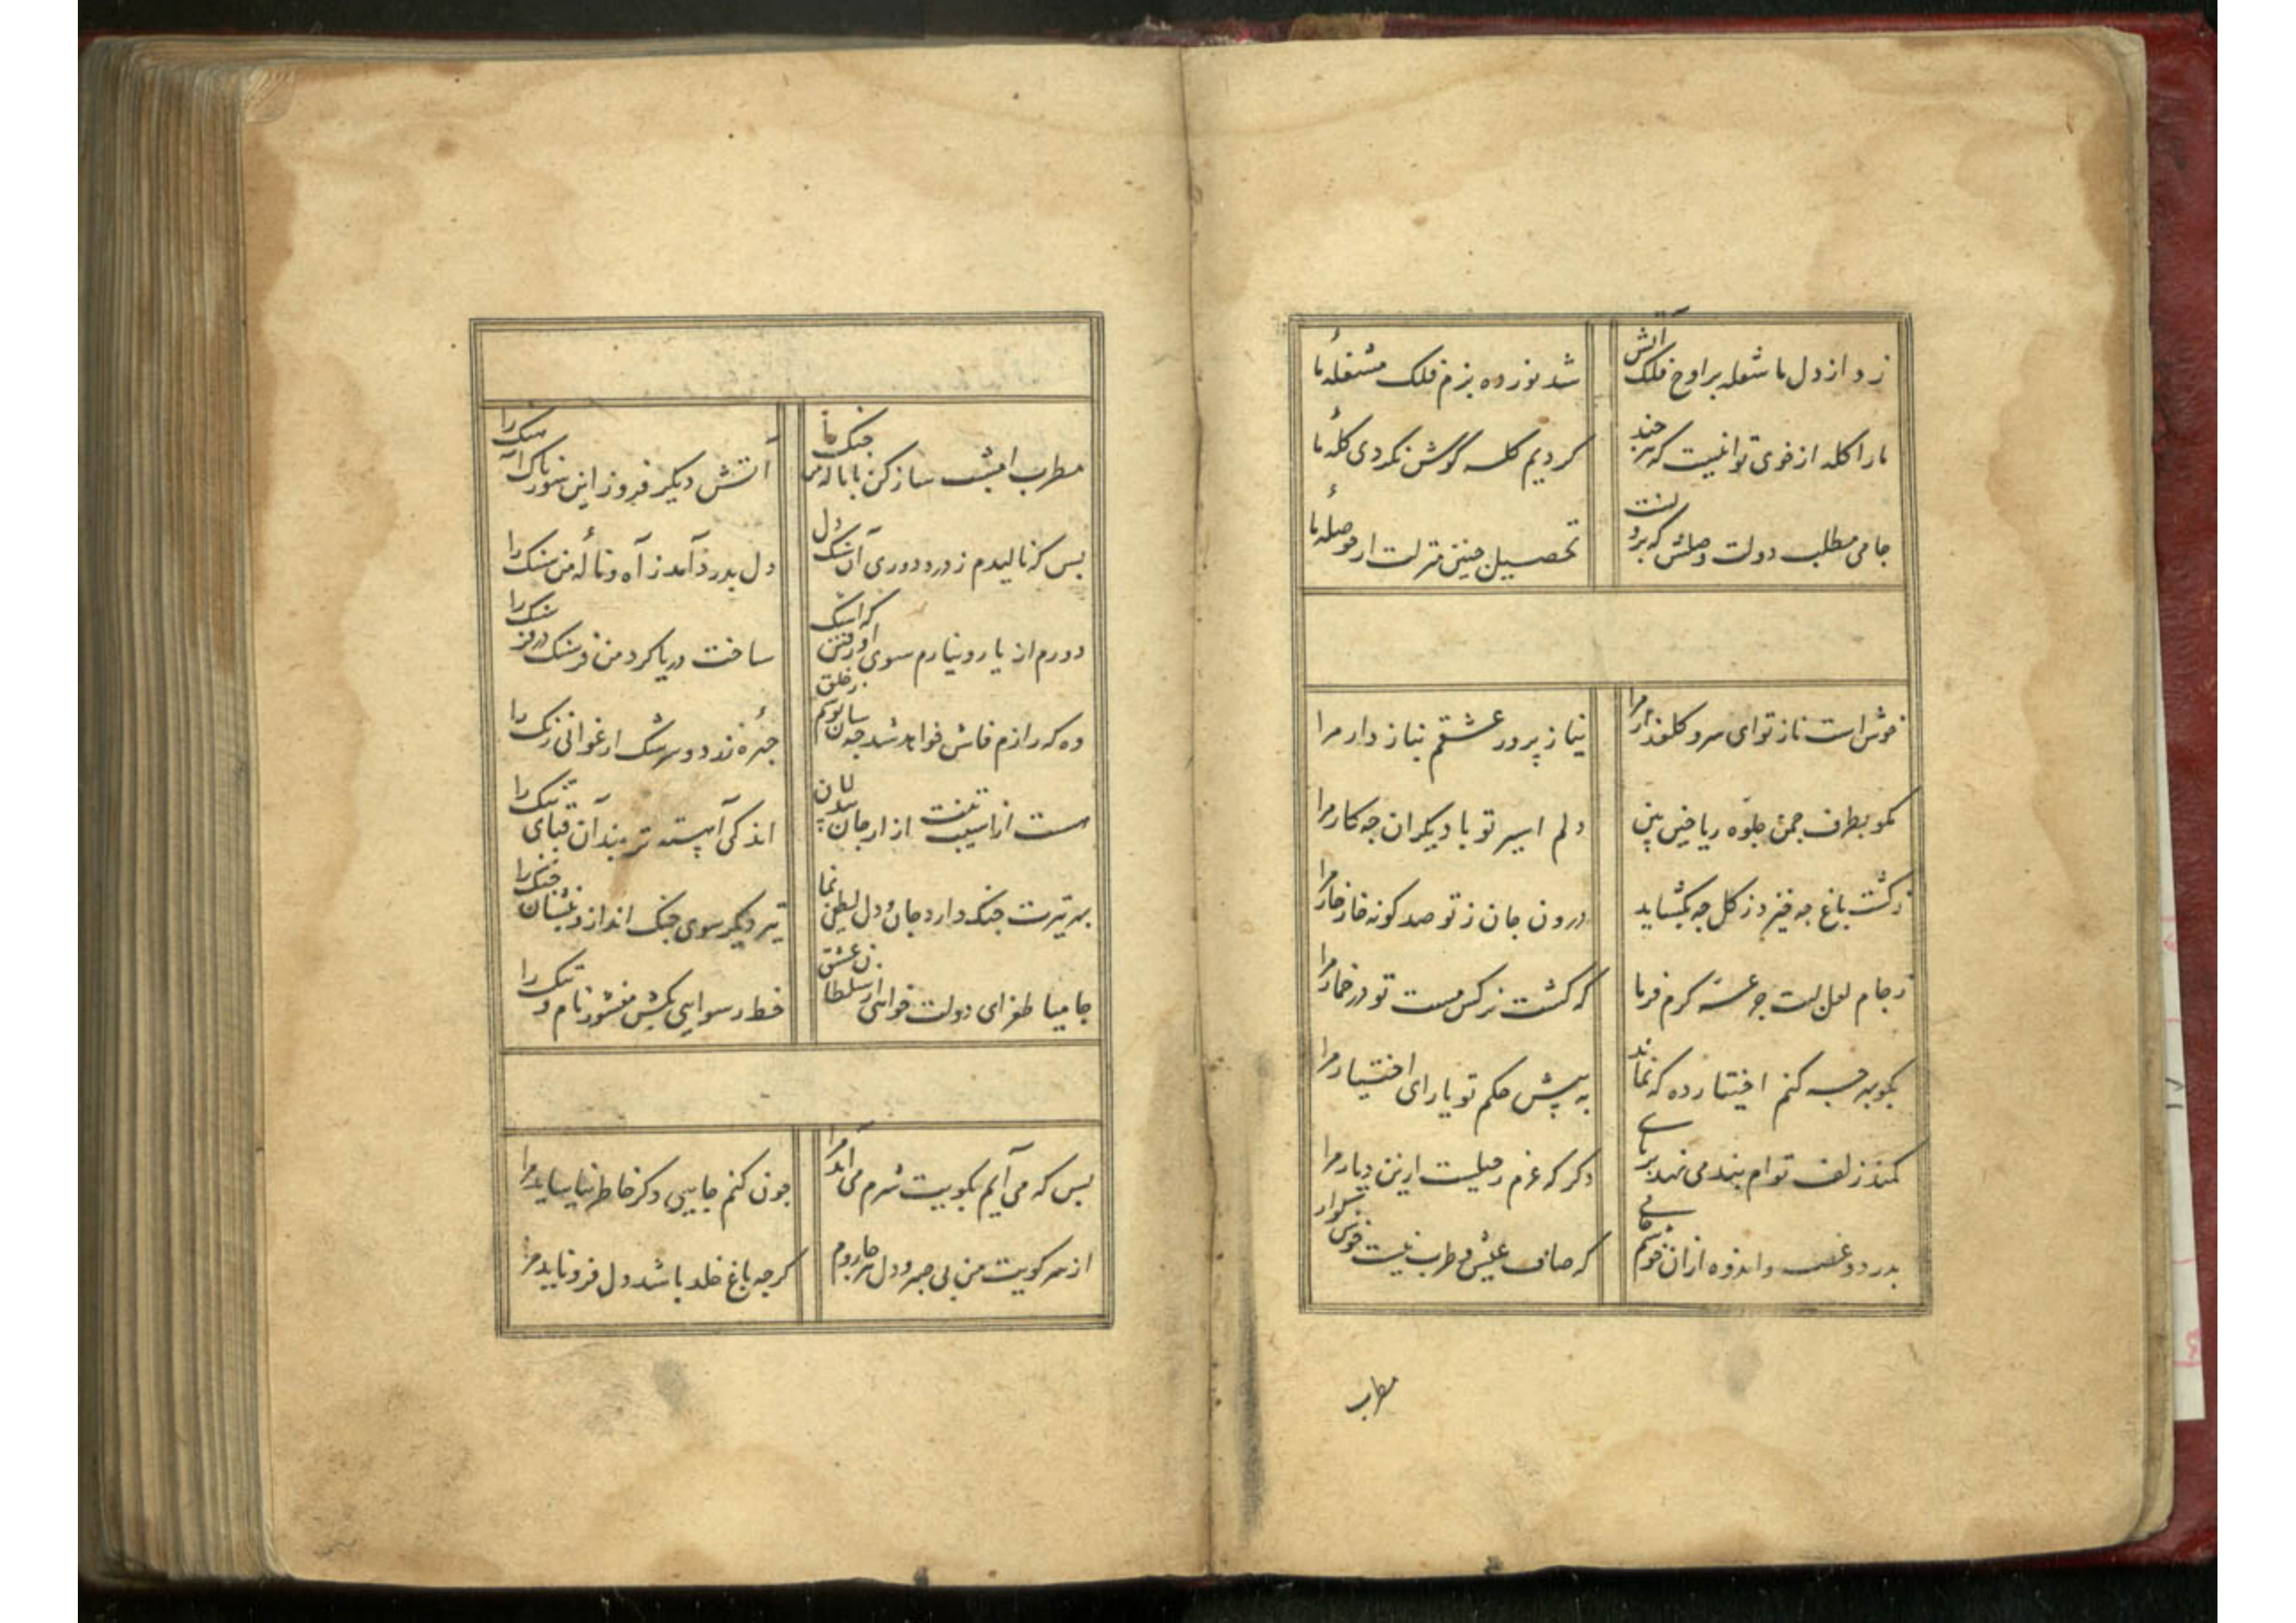 زد از دل ما شعله بر اوج فلک آتش
شد نوزده بزم فلک مشغلهٔ ما
ما را کله از خوی تو انیست که هر چند
کردیم کله گوش نکردی کلهٔ ما
جامی مطلب دولت وصلش که برونست
تحصیل چنین منزلت از حوصلهٔ ما
خوش است ناز تو ای سرو کلعذار مرا
نیاز پرور عشقم نیاز دار مرا
مکو بطرف چمن جلوه ریاحین بین
دلم اسیر تو با دیکران چه کار مرا
ز کشت باغ چه خیزد ز کل چه بکشاید
درون جان ز تو صد کونه خار خار مرا
ز جام لعل لبت جرعهٔ کرم فرما
که کشت نرکس مست تو در خمار مرا
بکو چه کنم اختیار ده که نماند
به پیش حکم تو یارای اختیار مرا
کمند زلف توام بند می نهد بر پای
دکر که عزم رحیلست ازین دیار مرا
بدرد و غصه و اندوه ازان خوشم جامی
که صاف عیش و طرب نیست خوش کوار
مطرب
مطرب امشب ساز کن با نالهٔ من چنک را
آتش دیکر فروز این سوزناک آهنک را
بس که نالیدم ز درد دوری آن سنک دل
دل بدرد آمد ز آه و نالهٔ من سنک را
دورم از یار و نیارم سوی او رفتن که اشک
ساخت دریا کرد من فرسنک در فرسنک را
وه که رازم فاش خواهد شد چه سان پوشم ز خلق
چهرهٔ زرد و سرشک ارغوانی رنک را
هست از آسیب تنت آزار جان بیدلان
اندکی آهسته تر بند آن قبای تنک را
بهر تیرت جنک دارد جان و دل لطفی نما
تیر دیکر سوی جنک انداز و بنشان جنک را
جامیا طغرای دولت خواهی از سلطان عشق
خط رسوایی بکش منشور نام و ننک را
بس که می آیم بکویت شرم می آید مرا
چون کنم جایی دکر خاطر نیاساید مرا
از سر کویت من بی صبر و دل هر جا روم
کرچه باغ خلد باشد دل فرو ناید مرا